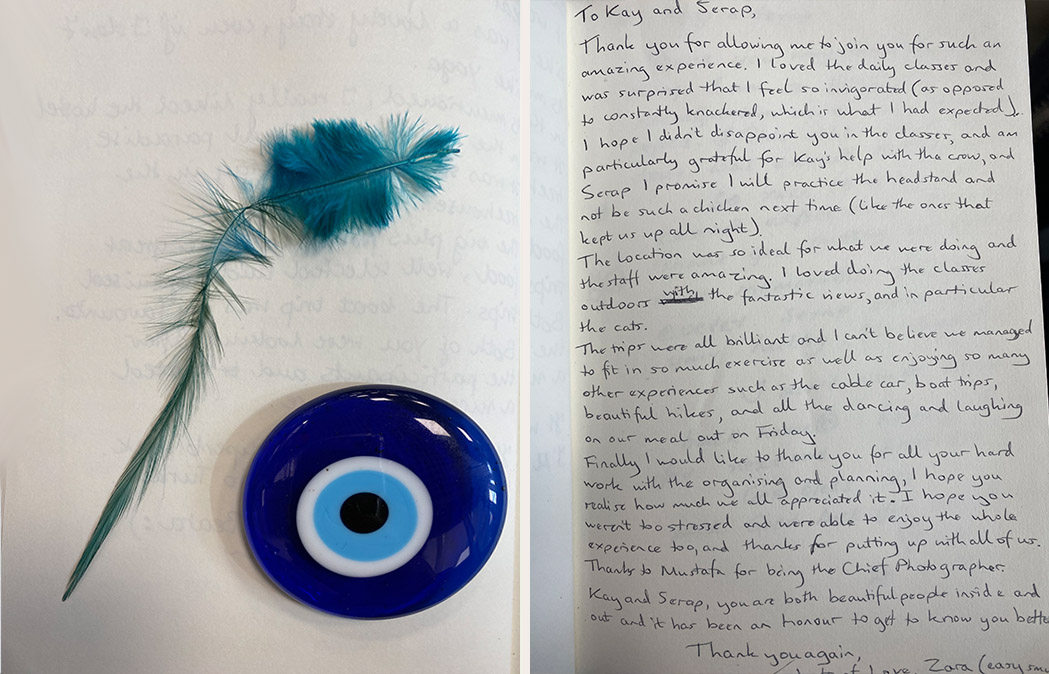 To Kay and Serap,
Thank you for allowing me to join you for such an
amazing experience. I loved the daily classes and
was surprised that I feel so invigorated (as opposed
to constantly knackered, which is what I had expected).
I hope I didn't disappoint you in the classes, and am
particularly grateful for Kay's help with the crow, and
Serap I promise I will practice the headstand and
not be such a chicken next time (like the ones that
kept us up all night).
The location was so ideal for what we were doing and
the staff were amazing. I loved doing the classes
outdoors with the fantastic views, and in particular
the cats.
The trips were all brilliant and I can't believe we managed
to fit in so much exercise as well as enjoying so many
other experiences such as the cable car, boat trips,
beautiful hikes, and all the dancing and laughing
on our meal out on Friday.
Finally I would like to thank you for all your hard
work with the organising and planning, I hope you
realise how much we all appreciated it. I hope you
weren't too stressed and were able to enjoy the whole
experience too, and thanks for putting up with all of us.
Thanks to Mustafa for being the Chief Photographer.
Kay and Serap, you are both beautiful people inside and
out and it has been an honour to get to know you
Thank you again,
Love, Zara (easy